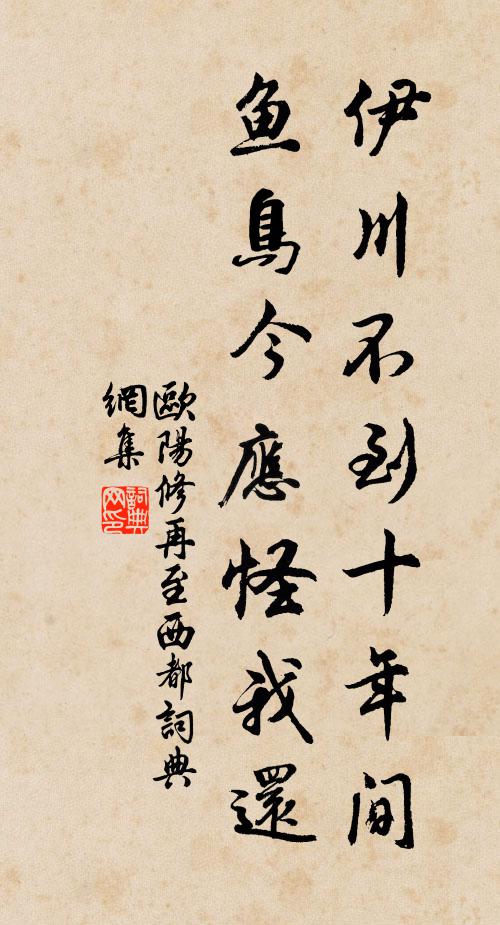 伊川不到十年間
鱼鳥今應怪我還
歐陽修再至西都詞典
網集
詞典网印